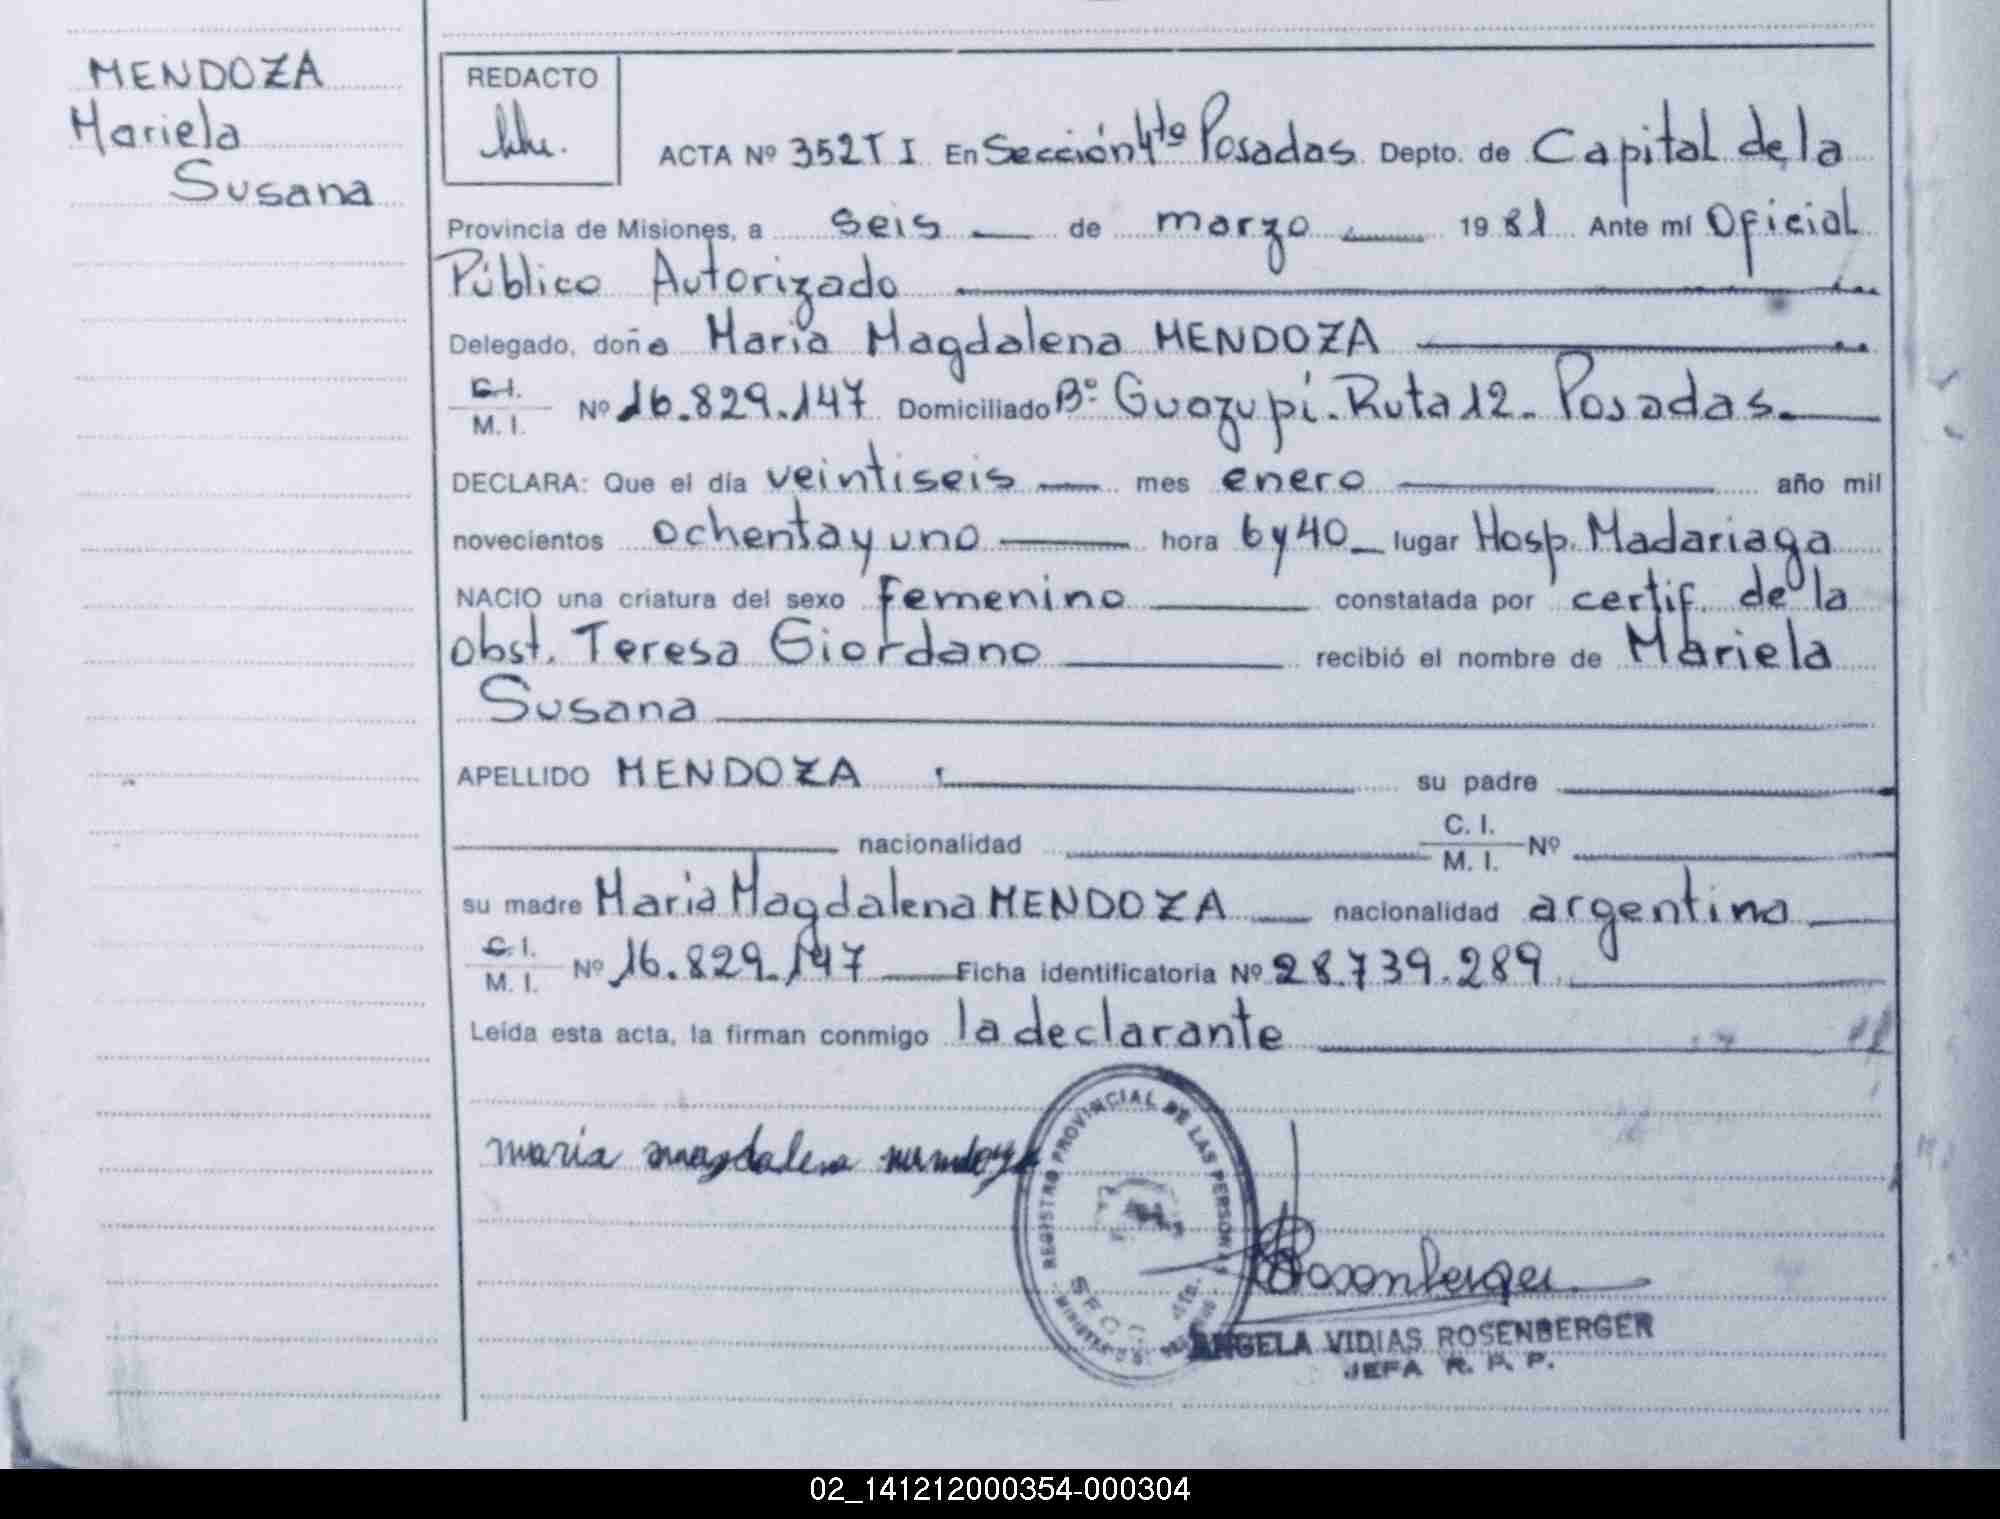 MENDOZA
Mariela
Susana
REDACTO
ACTA Nº 352 T I En Sección 4to Posadas Depto. de Capital de la
Provincia de Misiones, a seis de marzo 1981 Ante mí Oficial
Público Autorizado
Delegado, doña Maria Magdalena MENDOZA
C. I.
M. I. Nº 16.829.147 Domiciliado Bº Guazupi. Ruta 12. Posadas.
DECLARA: Que el día veintiseis mes enero año mil
novecientos ochenta y uno hora 6 y 40 lugar Hosp. Madariaga
NACIO una criatura del sexo femenino constatada por certif. de la
obst. Teresa Giordano recibió el nombre de Mariela
Susana
APELLIDO MENDOZA su padre
nacionalidad C. I.
M. I. Nº
su madre Maria Magdalena MENDOZA nacionalidad argentina
C. I.
M. I. Nº 16.829.147 Ficha identificatoria Nº 28.739.289
Leída esta acta, la firman conmigo la declarante
maria magdalena mendoza
REGISTRO PROVINCIAL DE LAS PERSONAS
Rosenberger
ANGELA VIDIAS ROSENBERGER
JEFA R. P. P.
02_141212000354-000304